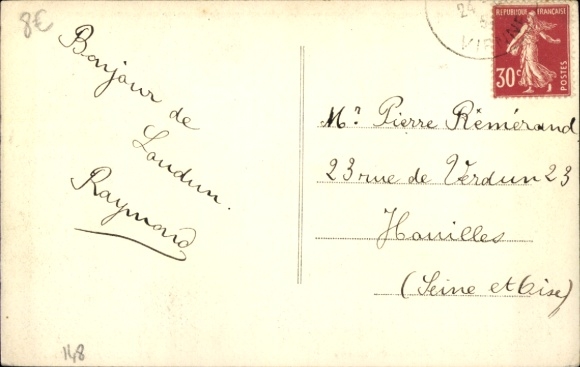 8€
Bonjour de
Loudun.
Raymond
148
24
VIENNE
REPUBLIQUE FRANÇAISE
30c
POSTES
Mr. Pierre Rémérand
23 rue de Verdun 23
Houilles
(Seine et Oise)